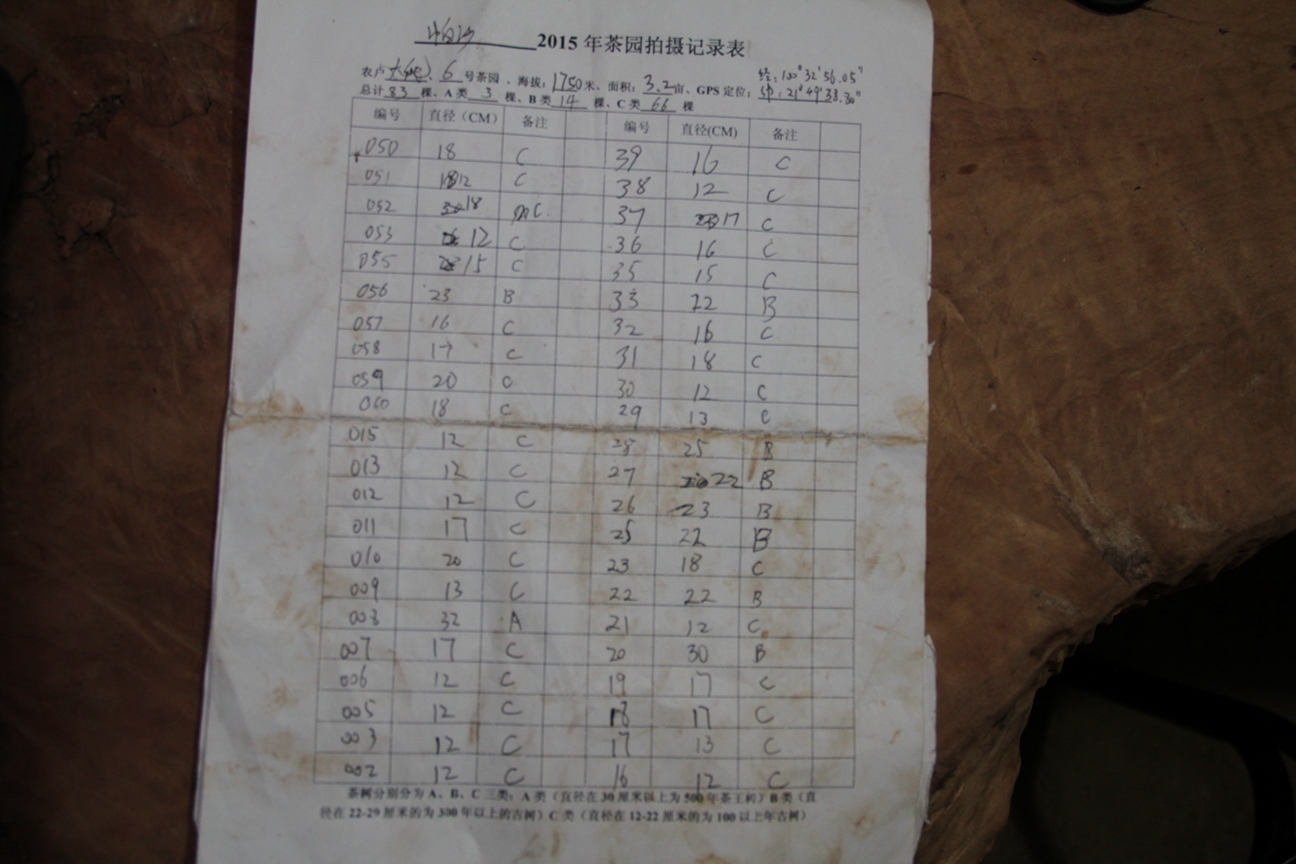 2015年茶园拍摄记录表
农户 6 号茶园、海拔:1750米、面积:3.2亩、GPS定位:经:100°32'56.05"
总计83棵、A类3棵、B类14棵、C类66棵 纬:21°49'38.30"
编号 直径(CM) 备注 编号 直径(CM) 备注
050 18 C 39 16 C
051 12 C 38 12 C
052 18 C. 37 17 C
053 12 C 36 16 C
055 15 C 35 15 C
056 23 B 33 22 B
057 16 C 32 16 C
058 17 C 31 18 C
059 20 C 30 12 C
060 18 C 29 13 C
015 12 C 28 25 B
013 12 C 27 22 B
012 12 C 26 23 B
011 17 C 25 22 B
010 20 C 23 18 C
009 13 C 22 22 B
008 32 A 21 12 C
007 17 C 20 30 B
006 12 C 19 17 C
005 12 C 18 17 C
003 12 C 17 13 C
002 12 C 16 12 C
茶树分别分为A、B、C三类:A类(直径在30厘米以上为500年茶王树)B类(直
径在22-29厘米的为300年以上的古树)C类(直径在12-22厘米的为100以上年古树)